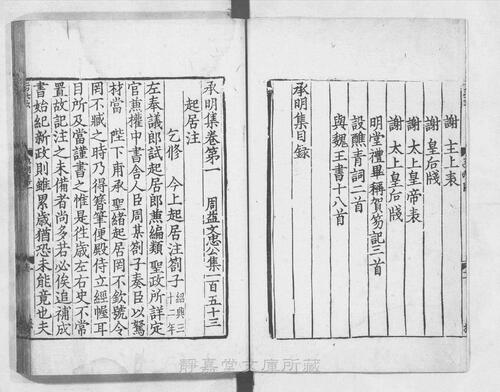 謝　主上表
謝　皇后牋
謝　太上皇帝表
謝　太上皇后牋
明堂禮畢稱賀笏記三首
設醮青詞二首
與魏王書十八首
承明集目録
承明集卷第一　周益文忠公集一百五十三
起居注
乞修　今上起居注劄子 紹興三十二年
左奉議郎試起居郎兼編類　聖政所詳定
官兼權中書舍人臣周某劄子奏臣以駑
材當　陛下甫承　聖緒起居罔不欽號令
罔不臧之時乃得簪筆便殿侍立經幄耳
目所及當謹書之惟是往歲左右史不常
置故記注之未備者尚多若必俟追補成
書始紀新政則雖累歲猶恐未能竟也夫
靜嘉堂文庫所藏